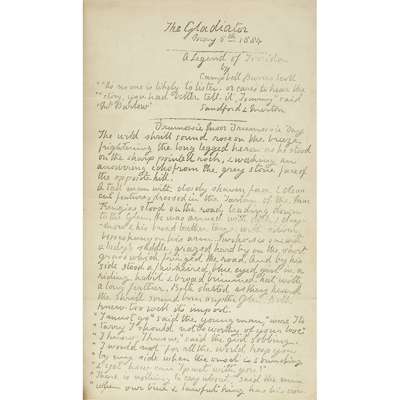 The Gladiator
May 8th 1884
A Legend of
by
Campbell Burns Scott
"As no one is likely to listen, or cares to hear the
"story, you had better tell it, Tommy" said
"Mr Barlow" Sandford & Merton
Drumossie Muir Drumossie Day
The wild shrill sound rose on the breeze
frightening the long legged heron as he stood
on the sharp pointed rock, & waking an
answering echo from the grey stone face of
the opposite hill.
A tall man with closely shaven face & clear
cut features dressed in the Tartan of the
stood on the road leading down
to the Glen. He was armed with
his broad leather
on his arm. Two horses one with
a lady's saddle, grazed hard by on the
grass which fringed the road, and by his
side stood a fair haired, blue eyed girl in a
riding habit & broad brimmed hat with
a long feather. Both started as they heard
the shrill sound from up the Glen. Both
knew too well its import.
"I must go" said the young man, "were I to
"tarry I should not be worthy of your love".
"I know, I know," said the girl sobbing.
"I would not for all the world keep you
by my side when the
"& yet how can I part with you!"
"There is nothing to say about" said the man
"when our true & lawful King has his own